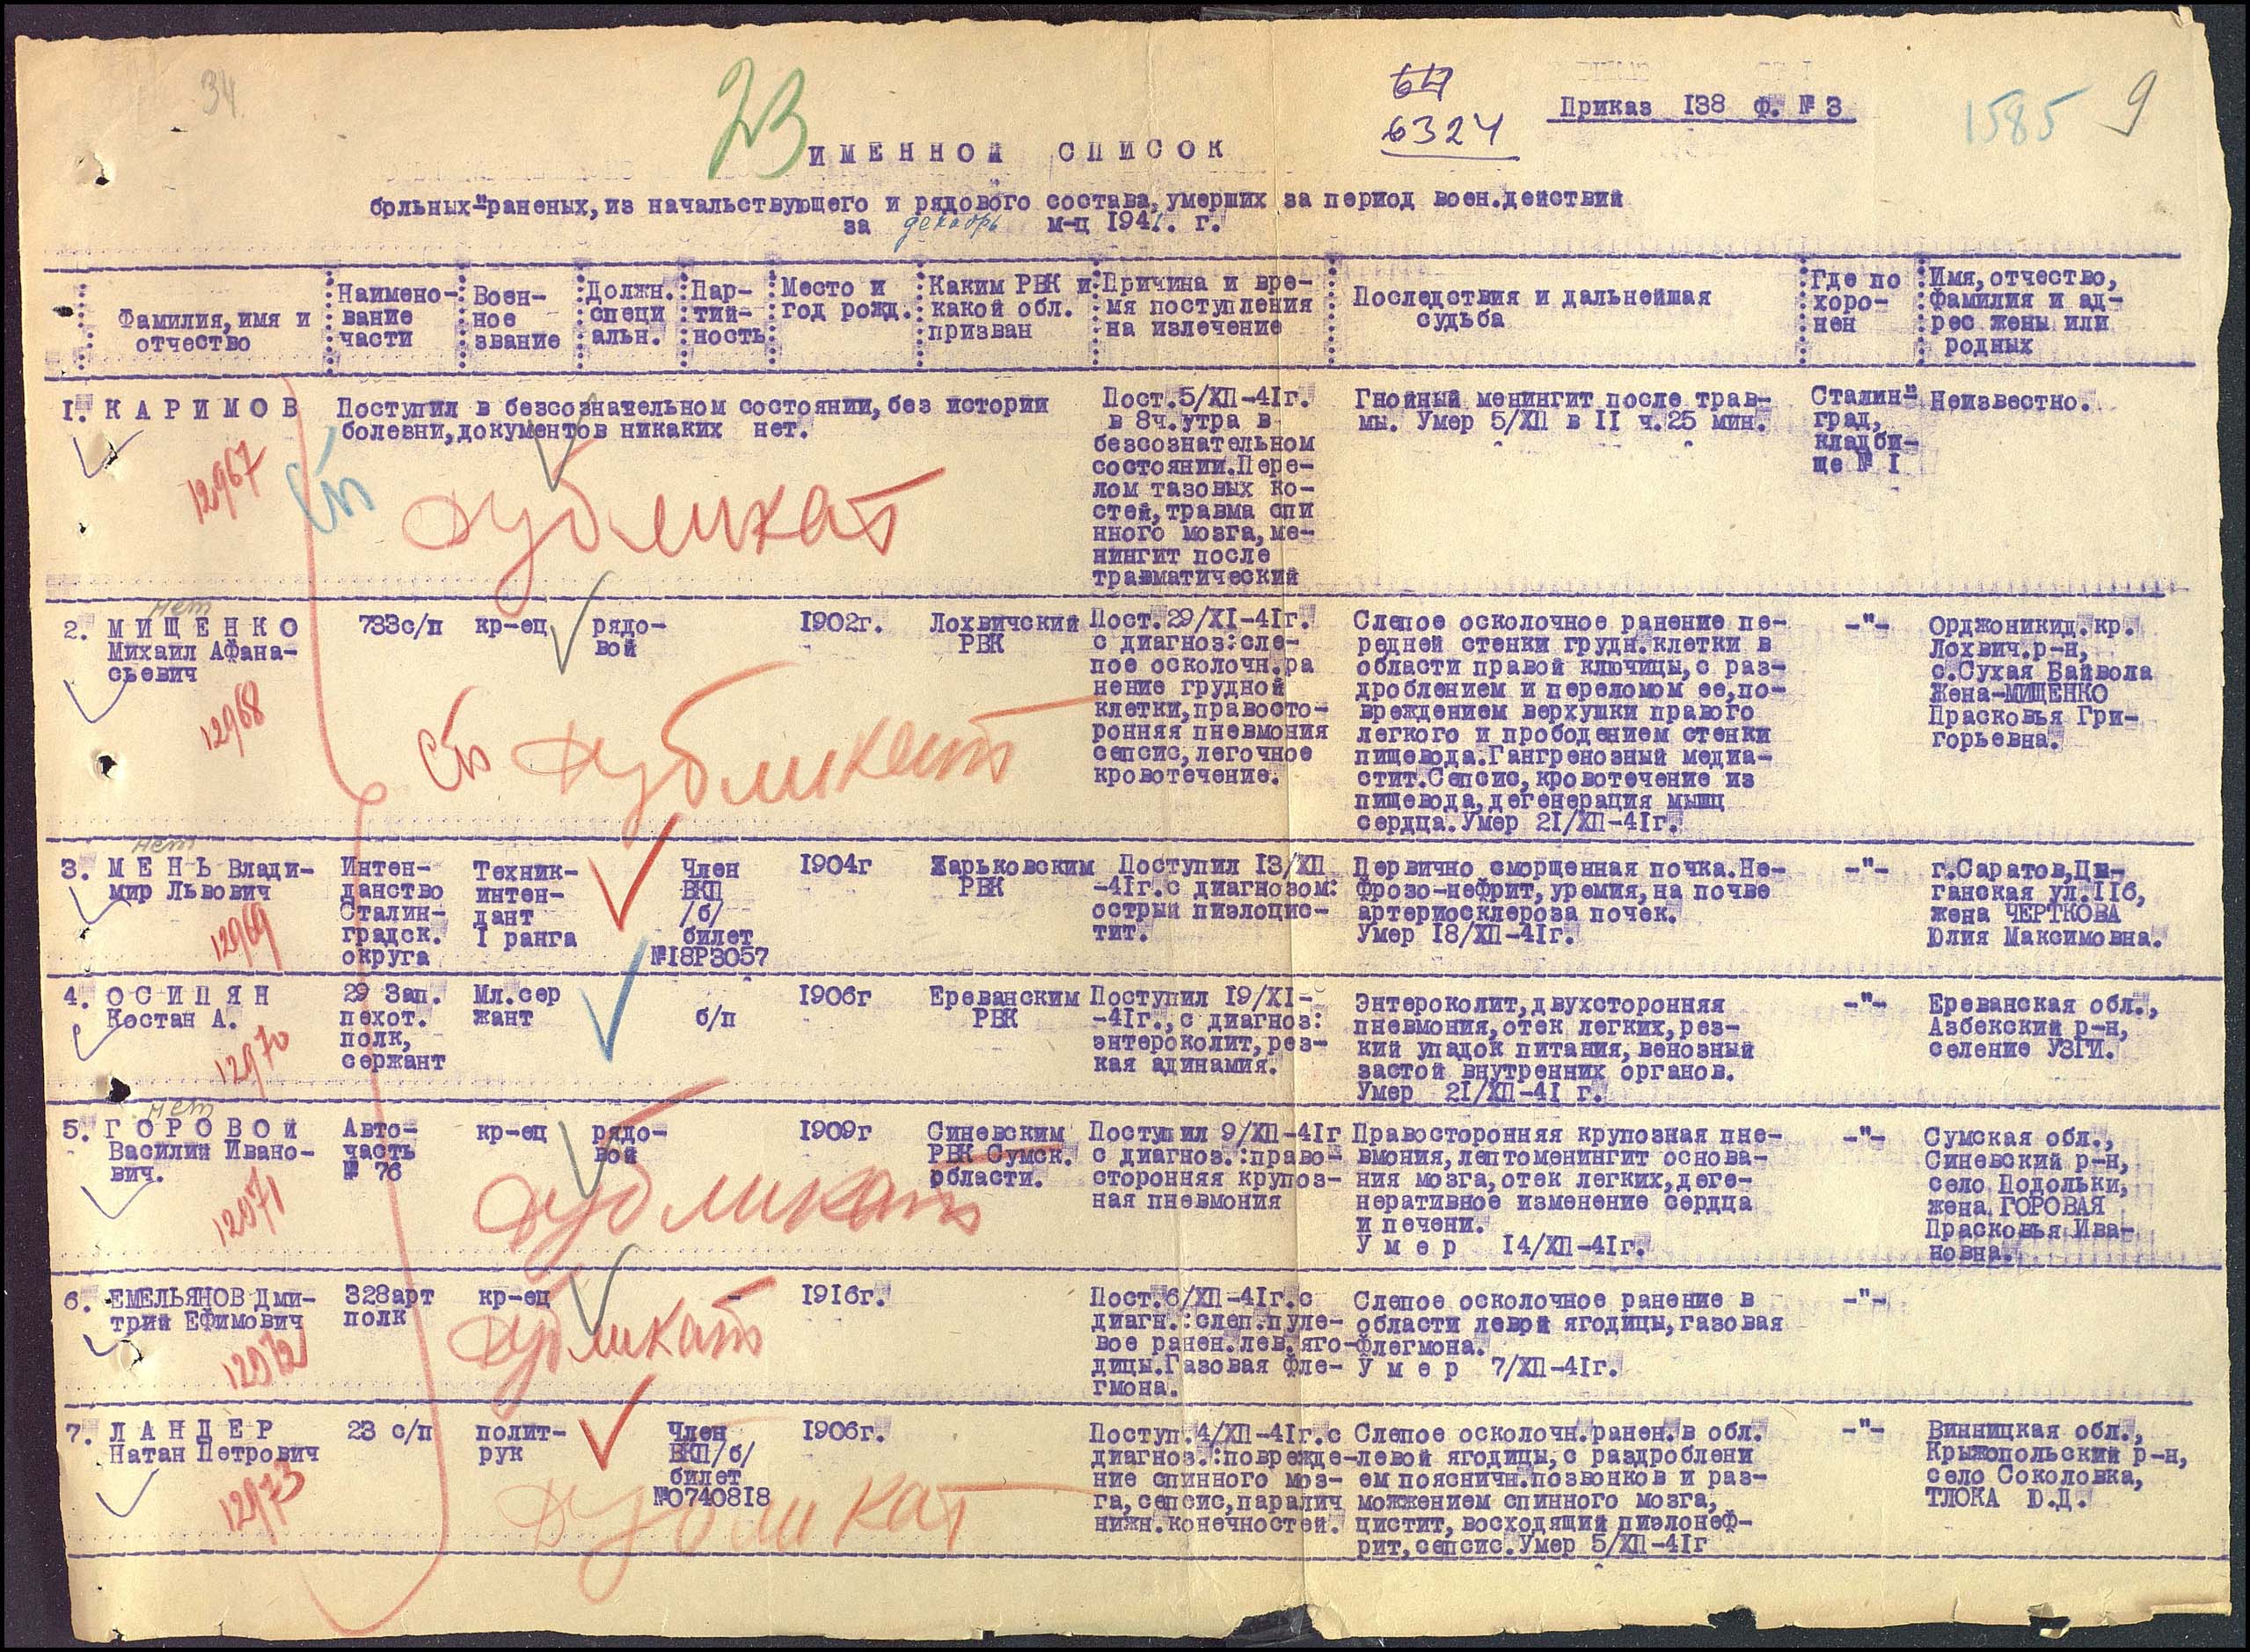 34
23
64
6324
Приказ 138 Ф. № 3
1585 9
ИМЕННОЙ СПИСОК
больных-раненых, из начальствующего и рядового состава, умерших за период воен.действий
за декабрь м-ц 1941. г.
Фамилия, имя и отчество
Наимено-вание части
Воен-ное звание
Должн. специ альн.
Пар-тий-ность
Место и год рожд.
Каким РВК и какой обл. призван
Причина и вре-мя поступления на излечение
Последствия и дальнейшая судьба
Где по хоро-нен
Имя, отчество, фамилия и ад-рес жены или родных
1. КАРИМОВ
12967
Поступил в безсознательном состоянии, без истории
болезни, документов никаких нет.
дубликат
Пост. 5/ХП-41г.
в 8ч. утра в
безсознательном
состоянии. Пере-
лом тазовых ко-
стей, травма спи
нного мозга, ме-
нингит после
травматический
Гнойный менингит после трав-
мы. Умер 5/ХП в 11 ч. 25 мин.
Сталин-
град,
кладби-
ще № 1
Неизвестно.
нет
2. МИЩЕНКО
Михаил Афана-
сьевич
12968
733с/п
кр-ец
рядо-
вой
1902г.
Лохвичский
РВК
дубликат
Пост. 29/XI-41г.
с диагноз: сле-
пое осколочн. ра
нение грудной
клетки, правосто-
ронняя пневмония
сепсис, легочное
кровотечение.
Слепое осколочное ранение пе-
редней стенки грудн. клетки в
области правой ключицы, с раз-
дроблением и переломом ее, по-
вреждением верхушки правого
легкого и прободением стенки
пищевода. Гангренозный медиа-
стит. Сепсис, кровотечение из
пищевода, дегенерация мышц
сердца. Умер 21/ХП-41г.
-"-
Орджоникид. кр.
Лохвич. р-н,
с. Сухая Вайвола
Жена-МИЩЕНКО
Прасковья Гри-
горьевна.
нет
3. МЕНЬ Влади-
мир Львович
12969
Интен-
данство
Сталин-
градск.
округа
Техник-
интен-
дант
1 ранга
Член
ВКП
/б/
билет
№18Р3057
1904г
Харьковским
РВК
Поступил 13/ХП
-41г. с диагнозом:
острый пиэлоцис-
тит.
Первично сморщенная почка. Не-
фрозо-нефрит, уремия, на почве
артериосклероза почек.
Умер 18/ХП-41г.
-"-
г. Саратов, Цы-
ганская ул. 116,
жена ЧЕРТКОВА
Юлия Максимовна.
4. ОСИПЯН
Костан А.
12970
29 Зап.
пехот.
полк,
сержант
Мл. сер
жант
б/п
1906г
Ереванским
РВК
Поступил 19/XI-
-41г., с диагноз:
энтероколит, рез-
кая адинамия.
Энтероколит, двухсторонняя
пневмония, отек легких, рез-
кий упадок питания, венозный
застой внутренних органов.
Умер 21/ХП-41 г.
-"-
Ереванская обл.,
Азбекский р-н,
селение УЗГИ.
нет
5. ГОРОВОЙ
Василий Ивано-
вич.
12971
Авто-
часть
№ 76
кр-ец
рядо-
вой
1909г
Синевским
РВК Сумск.
области.
дубликат
Поступил 9/ХП-41г
с диагноз.: право-
сторонняя крупоз-
ная пневмония
Правосторонняя крупозная пне-
вмония, лептоменингит основа-
ния мозга, отек легких, деге-
неративное изменение сердца
и печени.
Умер 14/ХП-41г.
-"-
Сумская обл.,
Синевский р-н,
село Подольки,
жена ГОРОВАЯ
Прасковья Ива-
новна.
6. ЕМЕЛЬЯНОВ Дми-
трий Ефимович
12972
328арт
полк
кр-ец
-
1916г.
дубликат
Пост. 6/ХП-41г. с
диагн.: слеп. пуле-
вое ранен. лев. яго-
дицы. Газовая фле-
гмона.
Слепое осколочное ранение в
области левой ягодицы, газовая
флегмона.
Умер 7/ХП-41г.
-"-
7. ЛАНДЕР
Натан Петрович
12973
23 с/п
полит-
рук
Член
ВКП/б/
билет
№0740818
1906г.
дубликат
Поступ. 4/ХП-41г. с
диагноз.: поврежде-
ние спинного моз-
га, сепсис, паралич
нижн. конечностей.
Слепое осколочн. ранен. в обл.
левой ягодицы, с раздроблени
ем пояснич. позвонков и раз-
можжением спинного мозга,
цистит, восходящий пиэлонеф-
рит, сепсис. Умер 5/ХП-41г
-"-
Винницкая обл.,
Крыжопольский р-н,
село Соколовка,
ТЛОКА Ю.Д.